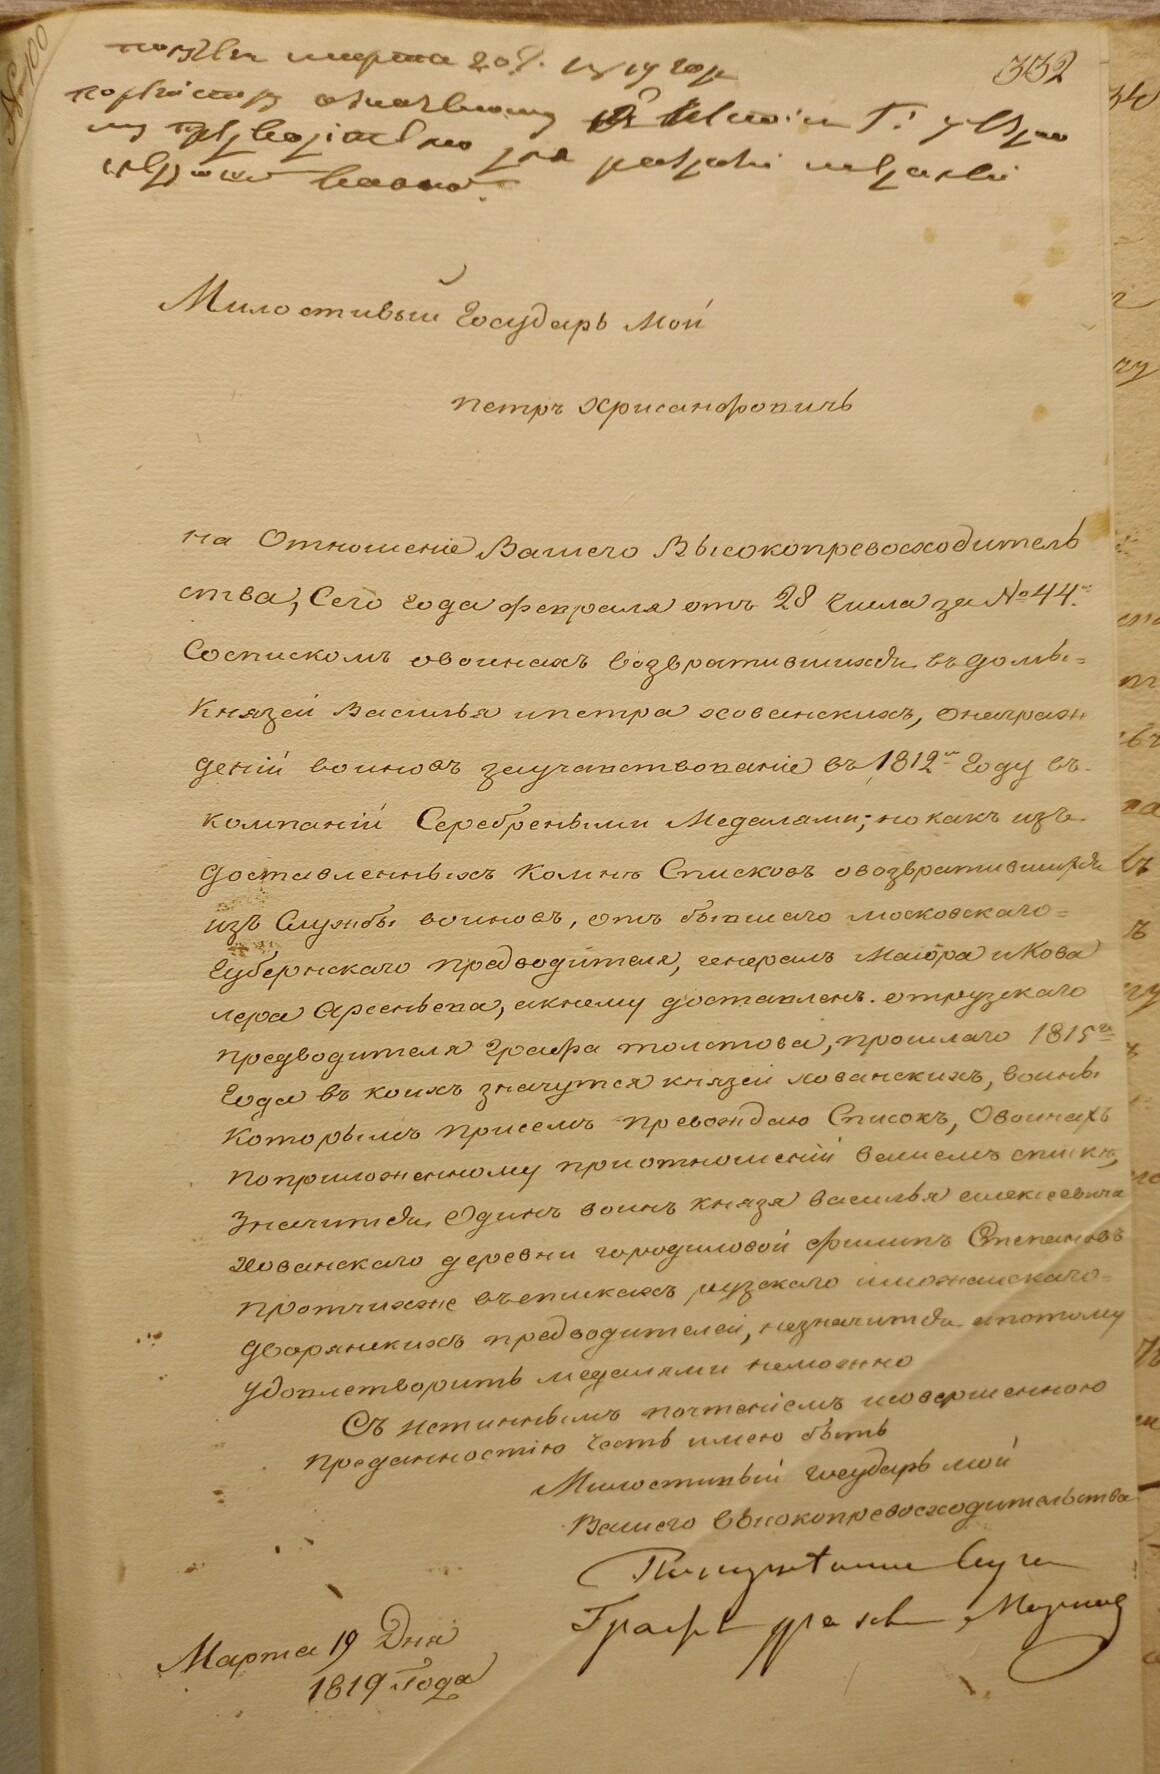 № 100
332
марта 20
Милостивый Государь Мой
петръ Хрисанфовичь
на Отношеніе Вашего Высокопревосходитель
ства, Сего года февраля отъ 28 числа за № 44.
Соспискомъ овоинахъ возвратившихся въ домы=
Князей Василья ипетра хованскихъ, онаграж
деніи воиновъ заучавствованіе въ 1812м Году въ
компаніи Серебреными Медалями; но какъ изъ
доставленныхъ комне Списковъ овозвратившихся
изъ Службы воиновъ, отъ бывшаго московскаго=
Губернскаго предводителя, генералъ Маіора иКова
лера Арсеньева, акнему доставленъ. отрузскаго
предводителя Графа толстова, прошлаго 1815го
Года въ коихъ значутся князей хованскихъ, воины
Которымъ присемъ превождаю Списокъ, Овоинахъ
поприложенному приотношеніи вашемъ списку,
значится Одинъ воинъ князя василья алексеевича
хованскаго деревни городиловой филипъ Степановъ
протчихже въспискахъ рузскаго иможайскаго=
дворянскихъ предводителей, незначится апотому
удовлетворить медалями неможно
Съ истиннымъ почтеніемъ исовершенною
преданностію честь имею быть
Милостивый государь мой
Вашего высокопревосходительства
Графъ
Марта 19 Дня
1819 Года